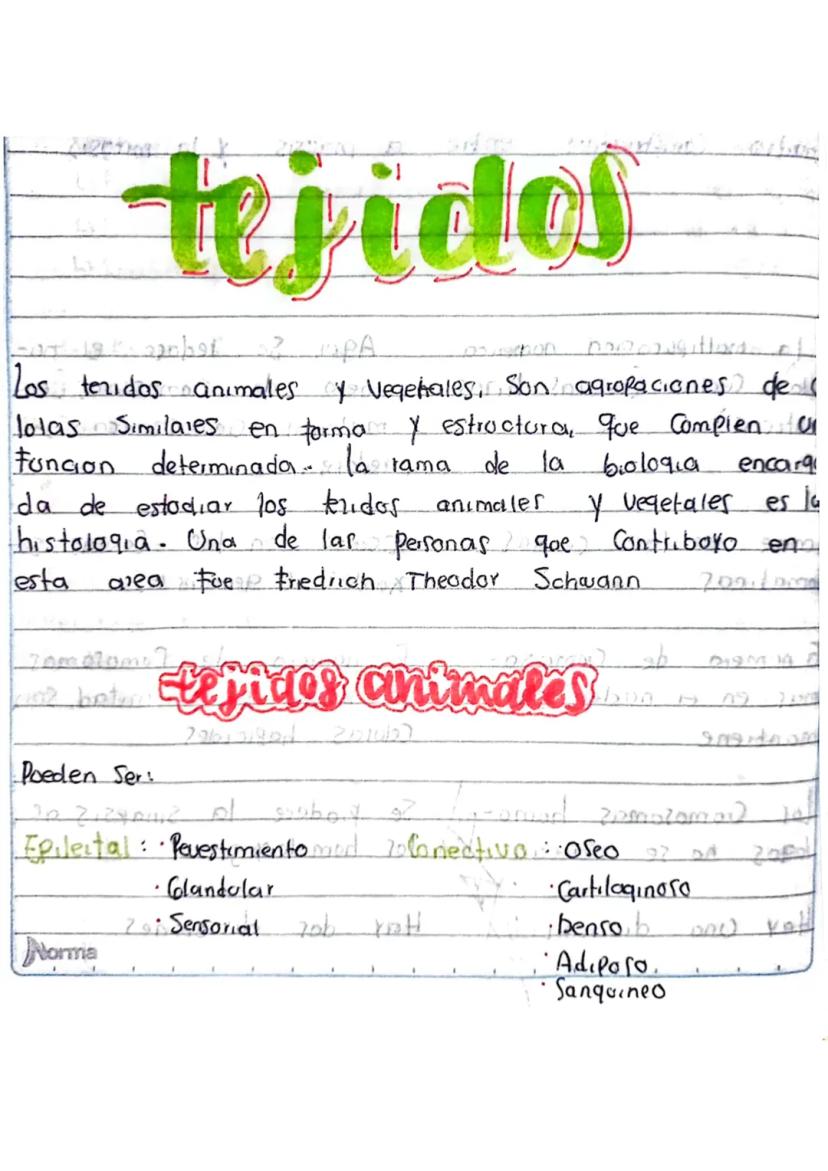 tejidos
Los tejidos animales y vegetales, Son agropaciones de c
lolas Similares en forma y estructura, que Complen un
función determinada. la rama de la biologia encarga
da de estodiar los tejidos animales y vegetales es la
histologia. Una de las personas que Contriboyo en
esta area Foe Friedrich Theodor Schwann
tejidos animales
Poeden Ser:
Epileital: · Revestimiento Conectivo: · Oseo
· Glandolar · Cartilaginoso
· Sensorial · Denso
Norma
· Adiposo.
· Sanguineo